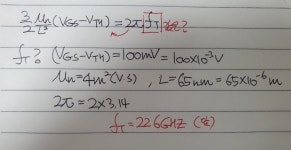 3/2 μn/L² (VGS-VTH) = 2π fT
fT? (VGS-VTH)=100mV = 100×10⁻³V
μn=4m²(V·S) , L=65nm = 65×10⁻⁶m
2π = 2×3.14
fT = 226GHZ (약)